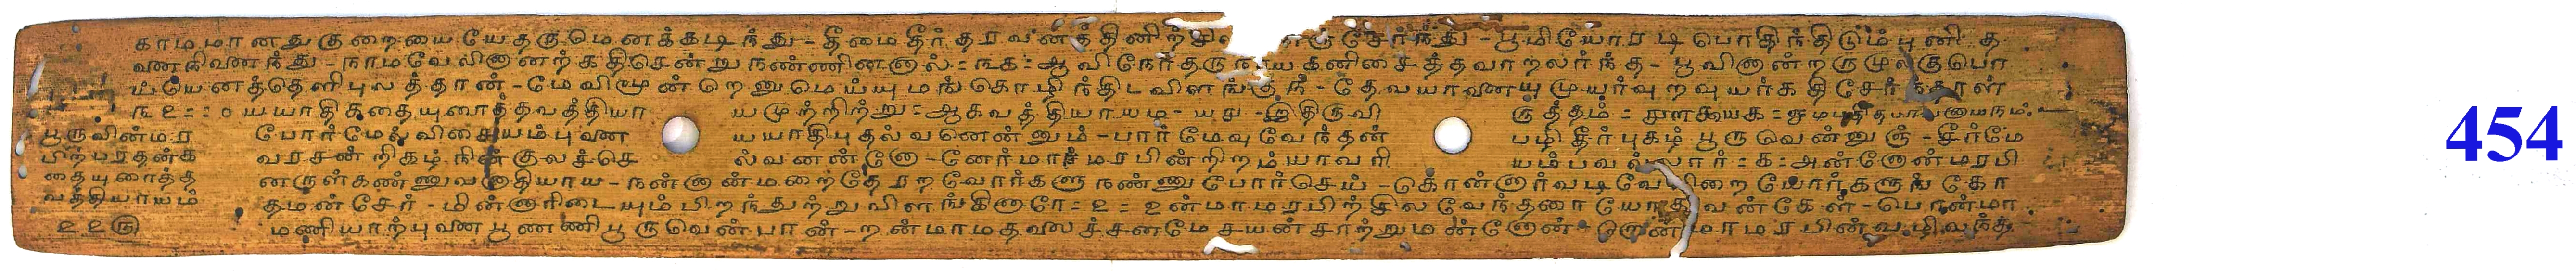 காமமானதுகுறையையேதருமெனக்கடிந்து - தீமைதீர்தரவனத்தினிற் சேர்ந்து - பூமியோரடிபொதிந்திடும்புனித
வணநிவணந்து - நாமவேலினானற்கதிசென்று நண்ணினனால் = ஙக = ஆவிநேர்தரு கனிசைத்தவாறலர்ந்த - பூவினான்றருமுலகுபொ
ய்யெனத்தெளிபுலத்தான் - மேவிமூன்றெனுமெய்யுமங்கொழிந்திடவிளங்கு - தேவயாவணயுமுயர்வுறவுயர்கதிசேர்ந்தாள்
ஙஉ = : 0 யயாதிகதையுரைத்தவத்தியாயமுற்றிற்று = ஆகவத்தியாயம் - யரு - திருவிருத்தம் =
பூருவின்மர
பிற்பரதன்க
தையுரைத்த
வத்தியாயம்
உஉரு
போர்மேல்விசையம்புவணயயாதிபுதல்வனென்னும் - பார்மேவுவேந்தன்பழிதீர்புகழ்பூருவென்னுஞ் - சீர்மே
வரசன்றிகழ்நின்குலச்செல்வனன்றோ - னேர்மாற்மரபின்றிறம்யாவரியம்பவல்லார் = க = அன்னோன்மரபி
னருள்கண்ணுவனாதியாய - நன்னான்மறைதேரறவோர்களுநண்ணுபோர்செய் - கொன்னார்வடிவேலிறையோர்களுங்கோ
தமன்சேர் - மின்னாரிடையும்பிறந்துற்றுவிளங்கினாரோ = உ = உன்மாமரபிற்சிலவேந்தரையோதுவன்கேள் - பொன்மா
மணியாற்புவணபூணணிபூருவென்பான் - றன்மாமதவலச்சனமேசயன்சாற்றுமன்னோன் மாமரபின்வழிவந்த